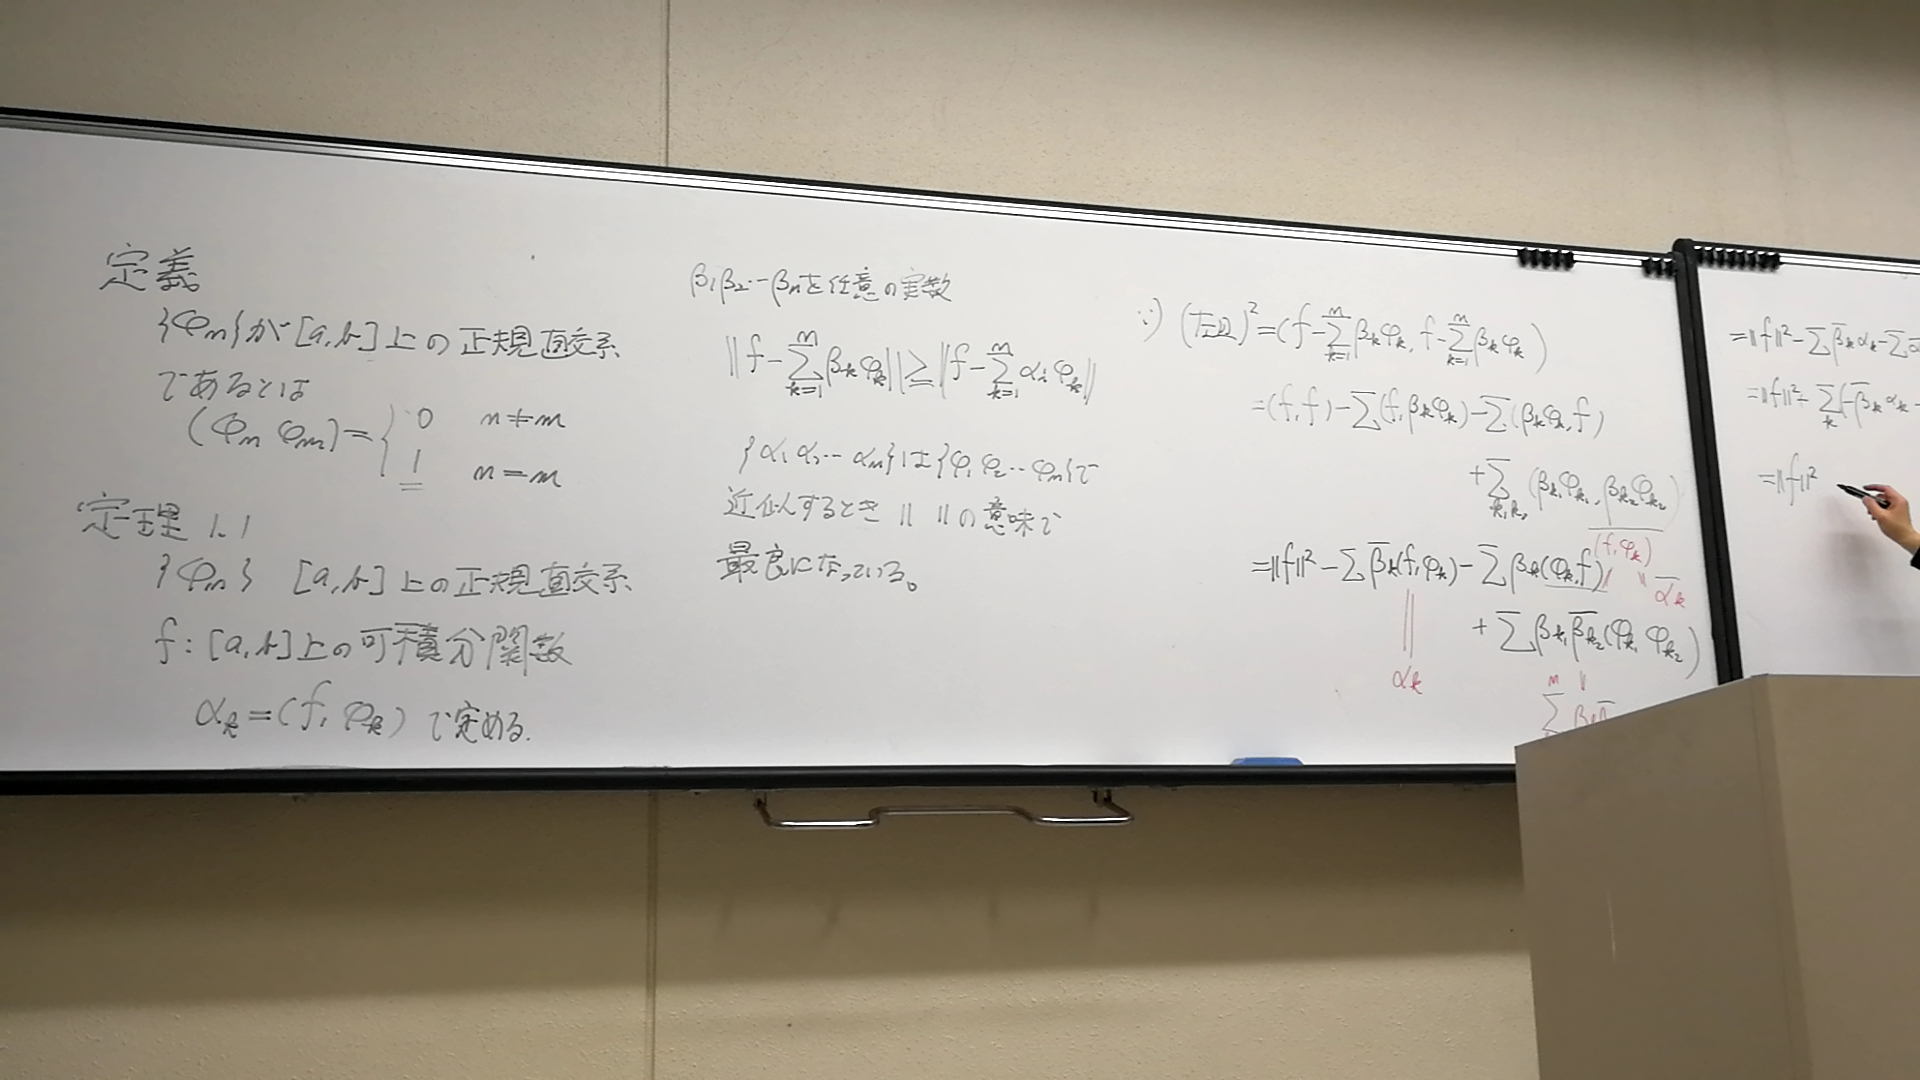 定義
{φn}が[a,b]上の正規直交系
であるとは
(φn φm)={ 0 n≠m
1 n=m
定理 1.1
{φn} [a,b]上の正規直交系
f:[a,b]上の可積分関数
αk=(f, φk)で定める.
β1 β2…βnを任意の実数
||f-∑_{k=1}^{n}βkφk||≧||f-∑_{k=1}^{n}αiφk||
{α1 α2…αn}は{φ1 φ2…φn}で
近似するとき || ||の意味で
最良になっている。
∵) (左辺)²=(f-∑_{k=1}^{n}βkφk, f-∑_{k=1}^{n}βkφk)
=(f,f)-∑(f,βkφk)-∑(βkφk,f)
+∑_{k1k2}(βk1φk1,βk2φk2)
(f,φk)
=||f||²-∑β̅k(f,φk)-∑βk(φk,f)
|| α̅k
+∑βk1β̅k2(φk1 φk2)
||
αk
=||f||²-∑β̅kαk-∑
=||f||²+∑_{k}(-β̅kαk-
=||f||²